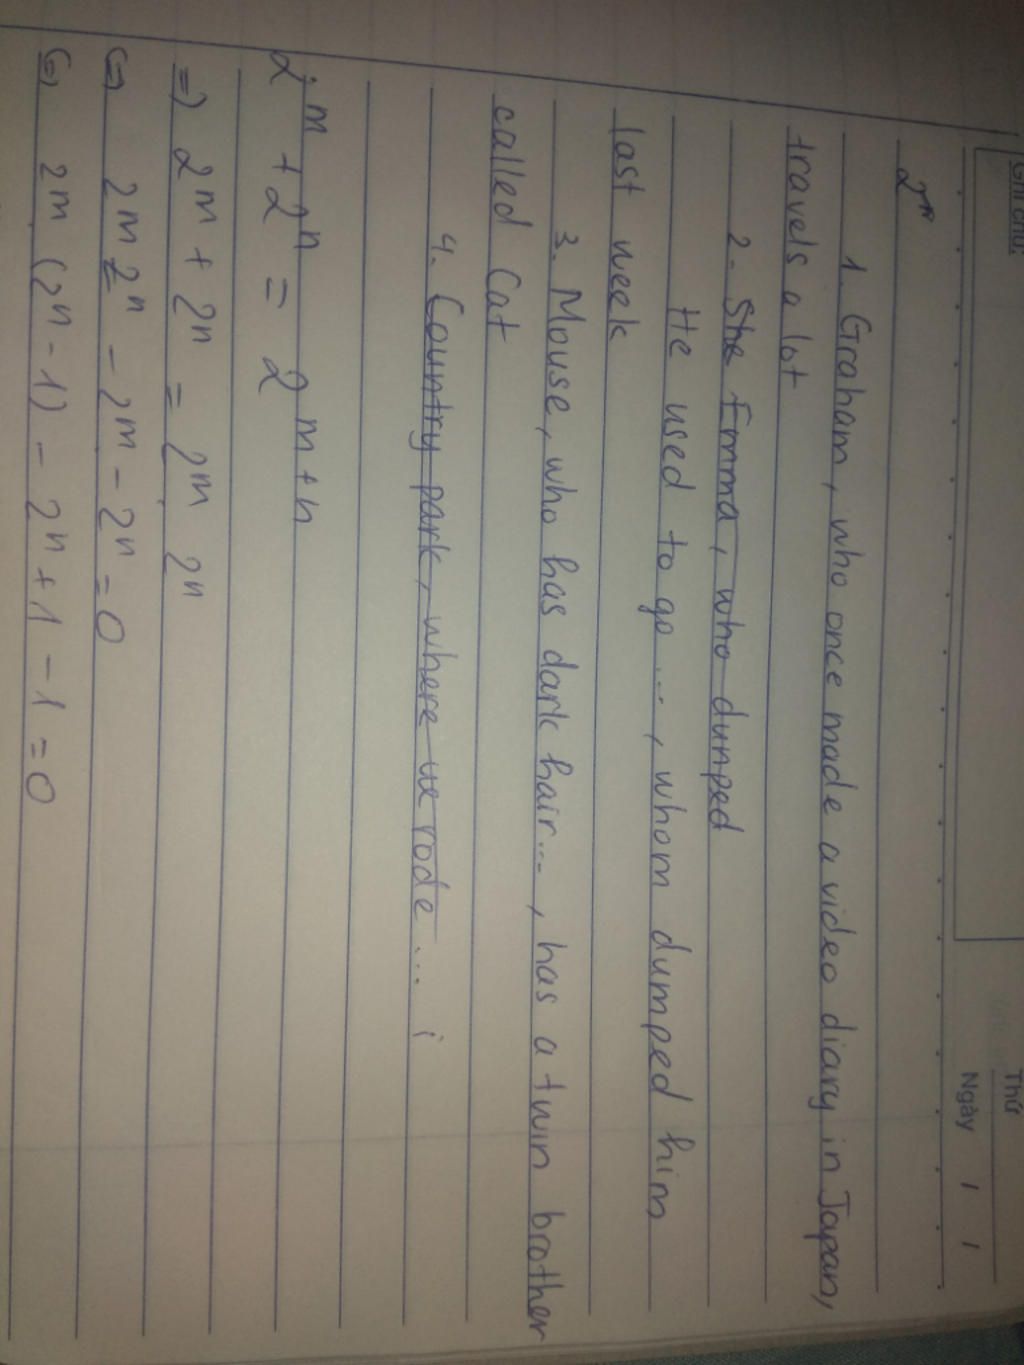 Ghi chú:
Thứ
Ngày / /
2ⁿ
1. Graham, who once made a video diary in Japan,
travels a lot
2. She Emma, who dumped
He used to go ..., whom dumped him
last week
3. Mouse, who has dark hair..., has a twin brother
called Cat
4. Country park, where we rode ... i
2ᵐ + 2ⁿ = 2ᵐ⁺ⁿ
=) 2ᵐ + 2ⁿ = 2ᵐ . 2ⁿ
(=) 2ᵐ 2ⁿ - 2ᵐ - 2ⁿ = 0
(=) 2ᵐ (2ⁿ - 1) - 2ⁿ + 1 - 1 = 0